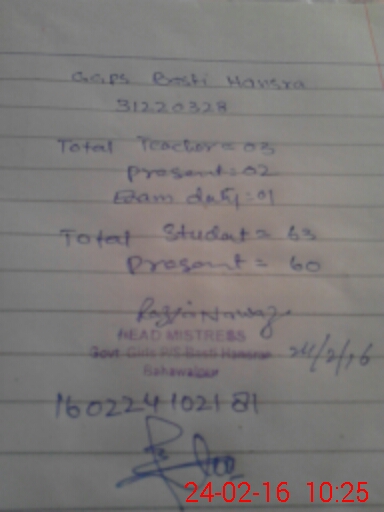 GGPS Basti Hansra
31220328
Total Teacher = 03
Present = 02
Exam duty = 01
Total Student = 63
Present = 60
Razia Nawaz
HEAD MISTRESS
Govt. Girls P/S Basti Hansra
Bahawalpur
24/2/16
160224102181
24-02-16 10:25